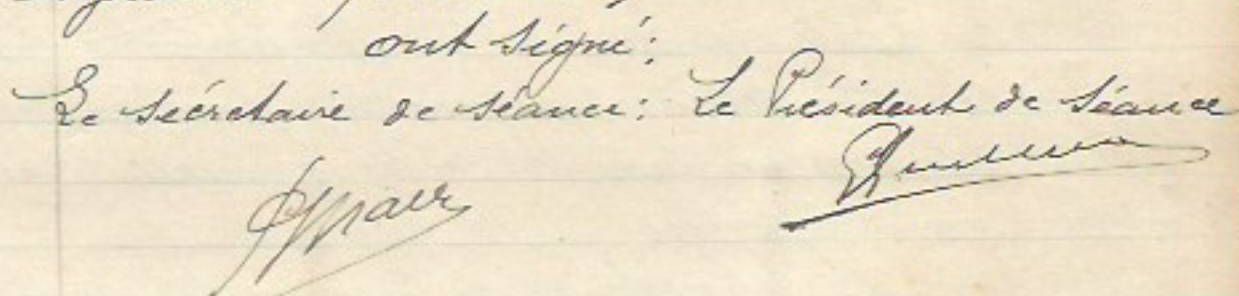 ont signé:
Le secrétaire de séance: Le Président de séance